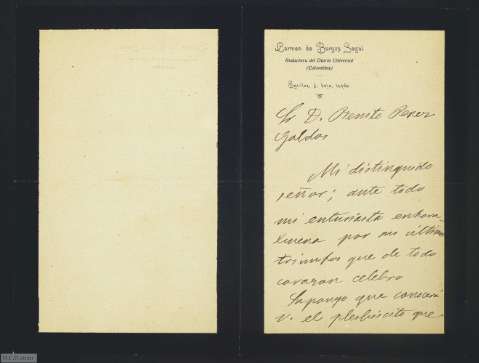 Carmen de Burgos Seguí
Redactora del Diario Universal
(Colombine)
Sr. D. Benito Perez
Galdos
Mi distinguido
señor; ante todo
mi entusiasta enhora-
buena por su último
triunfo que de todo
corazon celebro
Supongo que conocerá
V. el plebiscito que